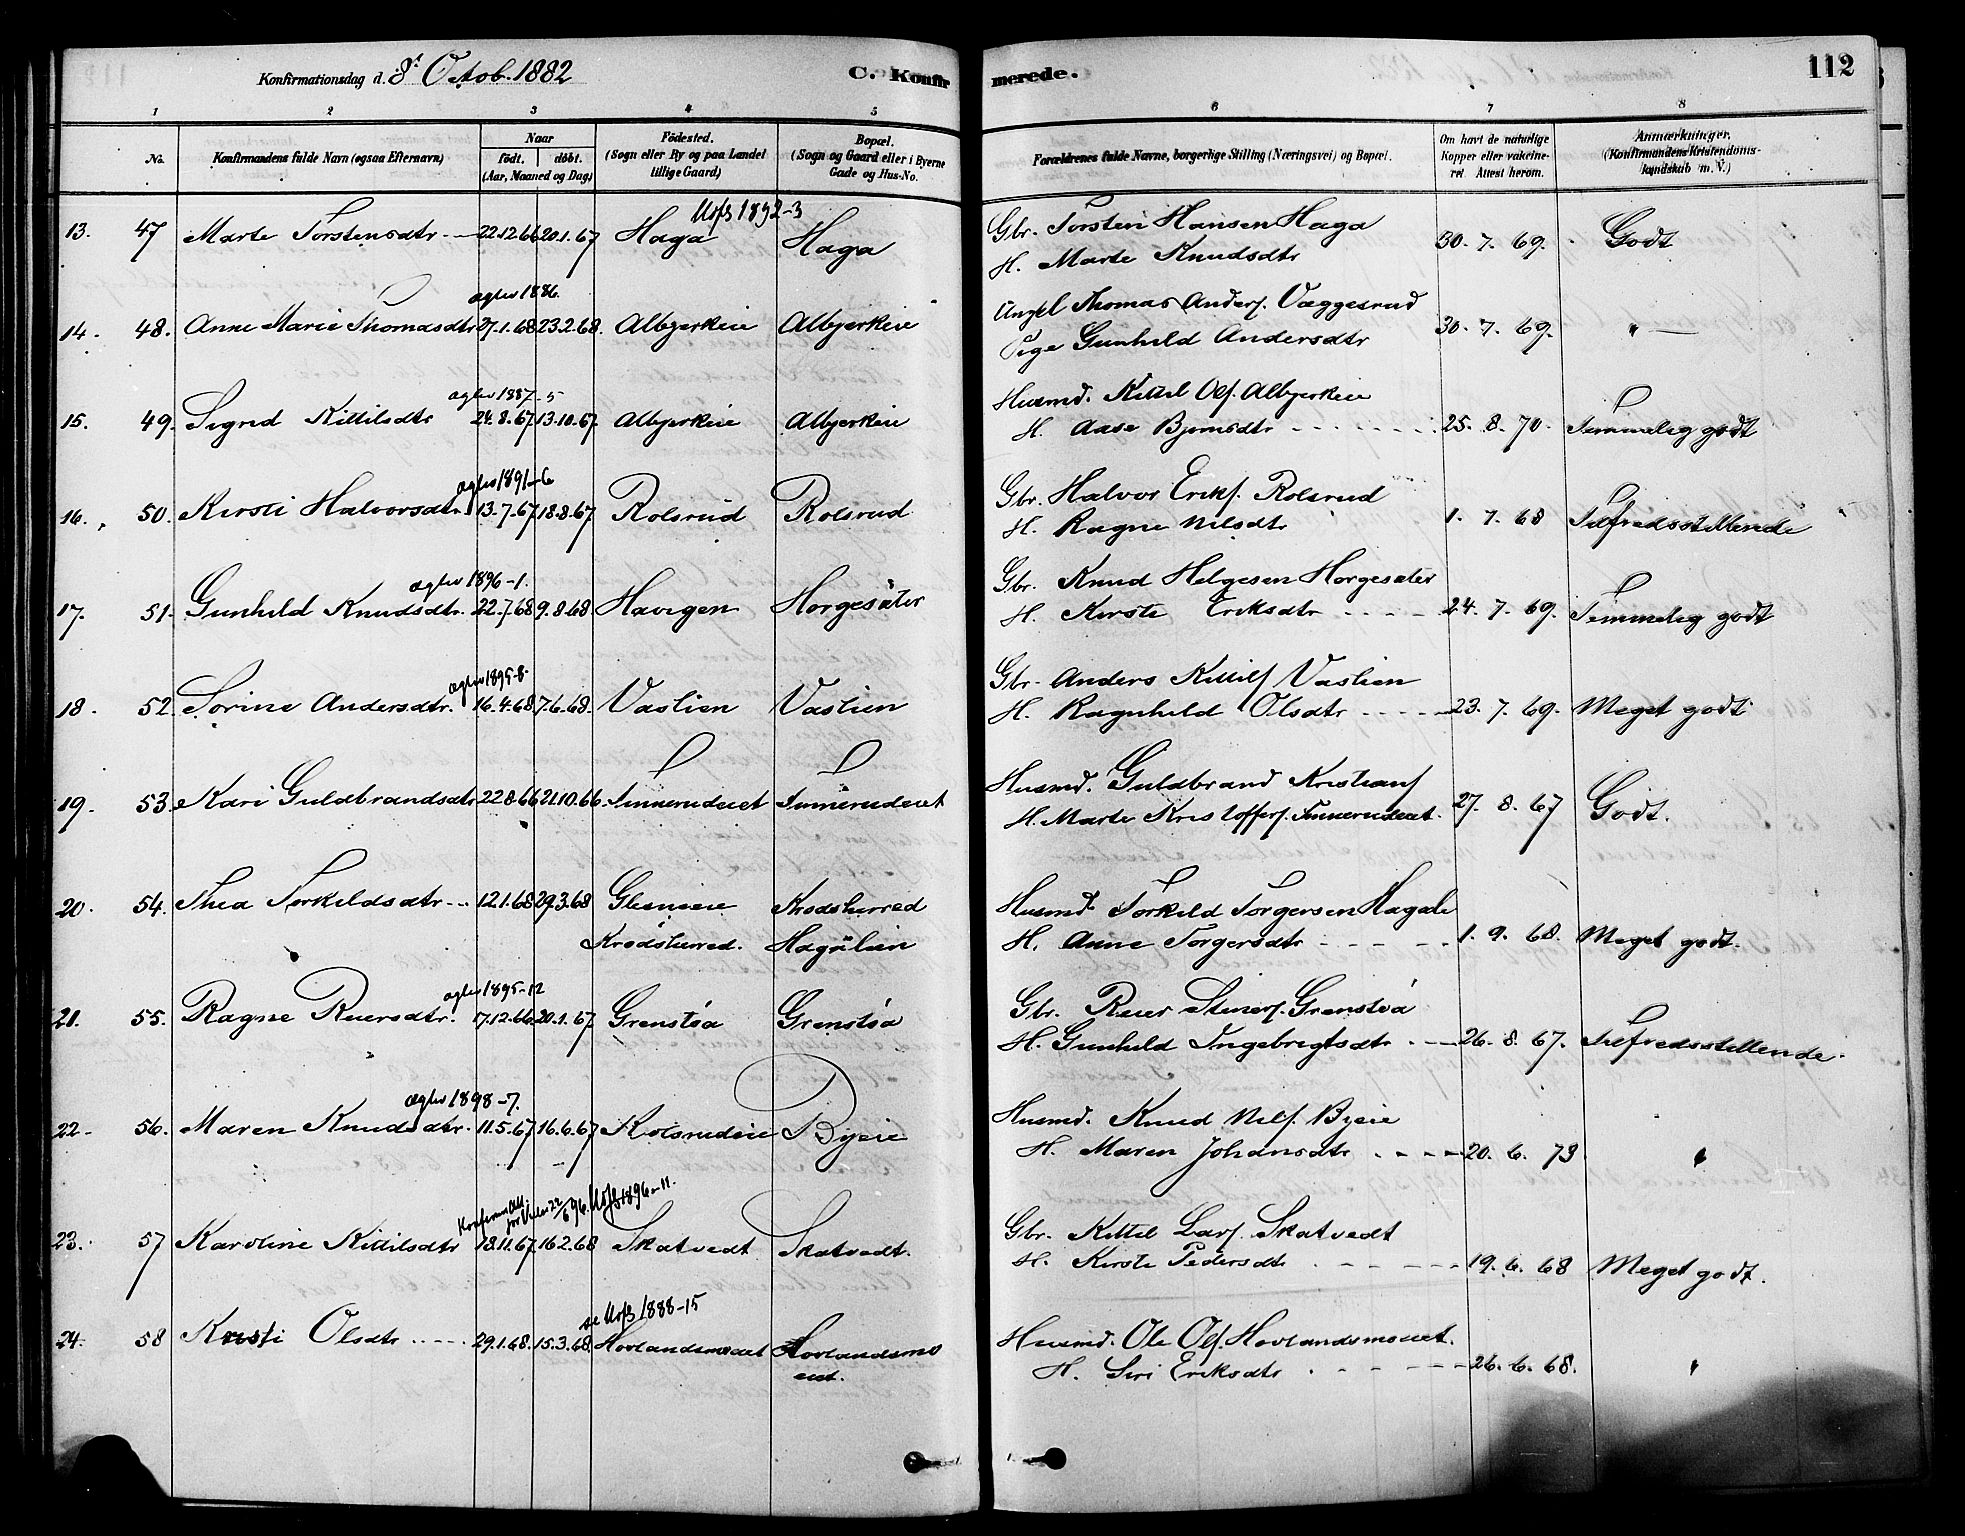 Konfirmationsdag d. 8de Octob. 1882 C. Konfirmerede. 112
1 2 3 4 5 6 7 8
No. Konfirmandens fulde Navn (ogsaa Efternavn) Naar født. døbt. (Aar, Maaned og Dag) Fødested. (Sogn eller By og paa Landet tillige Gaard) Bopæl. (Sogn og Gaard eller i Byerne Gade og Hus-No. Forældrenes fulde Navne, borgerlige Stilling (Næringsvei) og Bopæl. Om havt de naturlige Kopper eller vakcineret. Attest herom. Anmærkninger. (Konfirmandens Kristendomskundskab m. V.)
1892-3
13. 47 Marte Torstensdtr 22.12.66 20.1.67 Haga Haga Gbr. Torsten Hansen Haga
H. Marte Knudsdtr 30.7.69. Godt
ægtev 1886.
14. 48. Anne Marie Thomasdtr 27.1.68 23.2.68. Albjerkeie Albjerkeie Ungkl Thomas Anders. Væggesrud
Pige Gunhild Andersdtr 30.7.69. " —
ægtev 1887-5
15. 49. Sigrid Kittilsdtr 24.8.67 13.10.67. Albjerkeie Albjerkeie Husmd. Kittil Ols. Albjerkeie
H. Aase Bjørnsdtr 25.8.70. Temmelig godt
ægtev 1891-6
16. 50. Kirsti Halvorsdtr. 13.7.67 18.8.67 Rolsrud Rolsrud Gbr. Halvor Eriks. Rolsrud
H. Ragne Nilsdtr 1.7.68 Tilfredsstillende
ægtev 1896-1.
17. 51. Gunhild Knudsdtr. 22.7.68 9.8.68 Havigen Horgesæter Gbr. Knud Helgesen Horgesæter
H. Kirste Eriksdtr 24.7.69. Temmelig godt
ægtev 1895-8.
18. 52. Sørine Andersdtr. 16.4.68 7.6.68. Vaslien Vaslien Gbr. Anders Kittils. Vaslien
H. Ragnhild Olsdtr 23.7.69. Meget godt
19. 53. Kari Guldbrandsdtr 22.8.66 21.10.66. Finnerudeiet Finnerudeiet Husmd. Guldbrand Kristians.
H. Marte Kristoffers. Finnerudeiet. 27.8.67 Godt.
20. 54. Thea Torkildsdtr 12.1.68 29.3.68 Glesneeie Krødsherred Husmd. Torkild Torgersen
Krødsherred. Hagalien H. Anne Torgersdtr 1.9.68. Meget godt.
ægtev 1895-12
21. 55. Ragne Reiersdtr. 17.12.66. 20.1.67 Grenstøa Grenstøa Gbr. Reier Steners. Grenstøa
H. Gunhild Ingebrigtsdtr 26.8.67. Tilfredsstillende.
ægtev 1898-7.
22 56. Maren Knudsdtr. 11.5.67 16.6.67 Rolsrudeie Byeie Husmd. Knud Nils. Byeie
H. Maren Johansdtr. 20.6.73 "
1896-11.
23. 57 Karoline Kittilsdtr 18.11.67 16.2.68 Skatvedt Skatvedt. Gbr. Kittil Lars. Skatvedt
H. Kirste Pedersdtr 19.6.68 Meget godt.
se 1888-15
24. 58 Kristi Olsdtr 29.1.68. 15.3.68 Hovlandsmoeiet Hovlandsmo
eiet. Husmd. Ole Ols. Hovlandsmoeiet.
H. Siri Eriksdtr 26.6.68. "